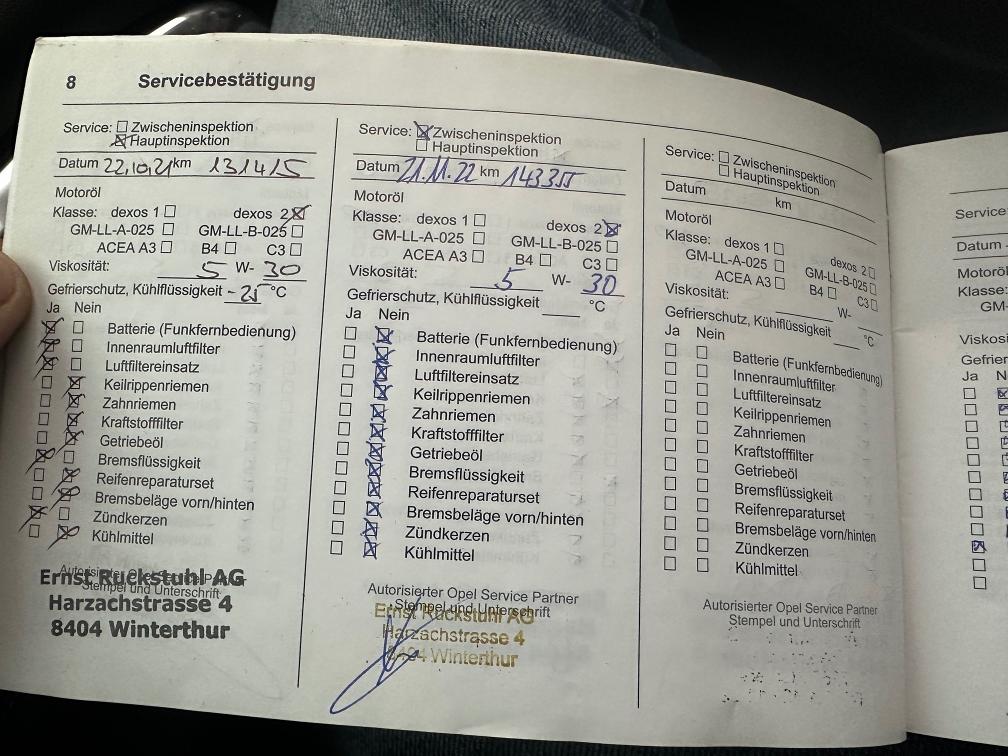 8 Servicebestätigung
Service: Zwischeninspektion
Hauptinspektion
Datum 22.10.21 km 131415
Motoröl
Klasse: dexos 1 dexos 2
GM-LL-A-025 GM-LL-B-025
ACEA A3 B4 C3
Viskosität: 5 W- 30
Gefrierschutz, Kühlflüssigkeit -25 °C
Ja Nein
Batterie (Funkfernbedienung)
Innenraumluftfilter
Luftfiltereinsatz
Keilrippenriemen
Zahnriemen
Kraftstofffilter
Getriebeöl
Bremsflüssigkeit
Reifenreparaturset
Bremsbeläge vorn/hinten
Zündkerzen
Kühlmittel
Autorisierter Opel Service Partner
Stempel und Unterschrift
Ernst Rückstuhl AG
Harzachstrasse 4
8404 Winterthur
Service: Zwischeninspektion
Hauptinspektion
Datum 21.11.22 km 143355
Motoröl
Klasse: dexos 1 dexos 2
GM-LL-A-025 GM-LL-B-025
ACEA A3 B4 C3
Viskosität: 5 W- 30
Gefrierschutz, Kühlflüssigkeit °C
Ja Nein
Batterie (Funkfernbedienung)
Innenraumluftfilter
Luftfiltereinsatz
Keilrippenriemen
Zahnriemen
Kraftstofffilter
Getriebeöl
Bremsflüssigkeit
Reifenreparaturset
Bremsbeläge vorn/hinten
Zündkerzen
Kühlmittel
Autorisierter Opel Service Partner
Stempel und Unterschrift
Ernst Rückstuhl AG
Harzachstrasse 4
8404 Winterthur
Service: Zwischeninspektion
Hauptinspektion
Datum km
Motoröl
Klasse: dexos 1 dexos 2
GM-LL-A-025 GM-LL-B-025
ACEA A3 B4 C3
Viskosität: W-
Gefrierschutz, Kühlflüssigkeit °C
Ja Nein
Batterie (Funkfernbedienung)
Innenraumluftfilter
Luftfiltereinsatz
Keilrippenriemen
Zahnriemen
Kraftstofffilter
Getriebeöl
Bremsflüssigkeit
Reifenreparaturset
Bremsbeläge vorn/hinten
Zündkerzen
Kühlmittel
Autorisierter Opel Service Partner
Stempel und Unterschrift
Service:
Datum
Motoröl
Klasse:
GM-
Viskosi
Gefrier
Ja N